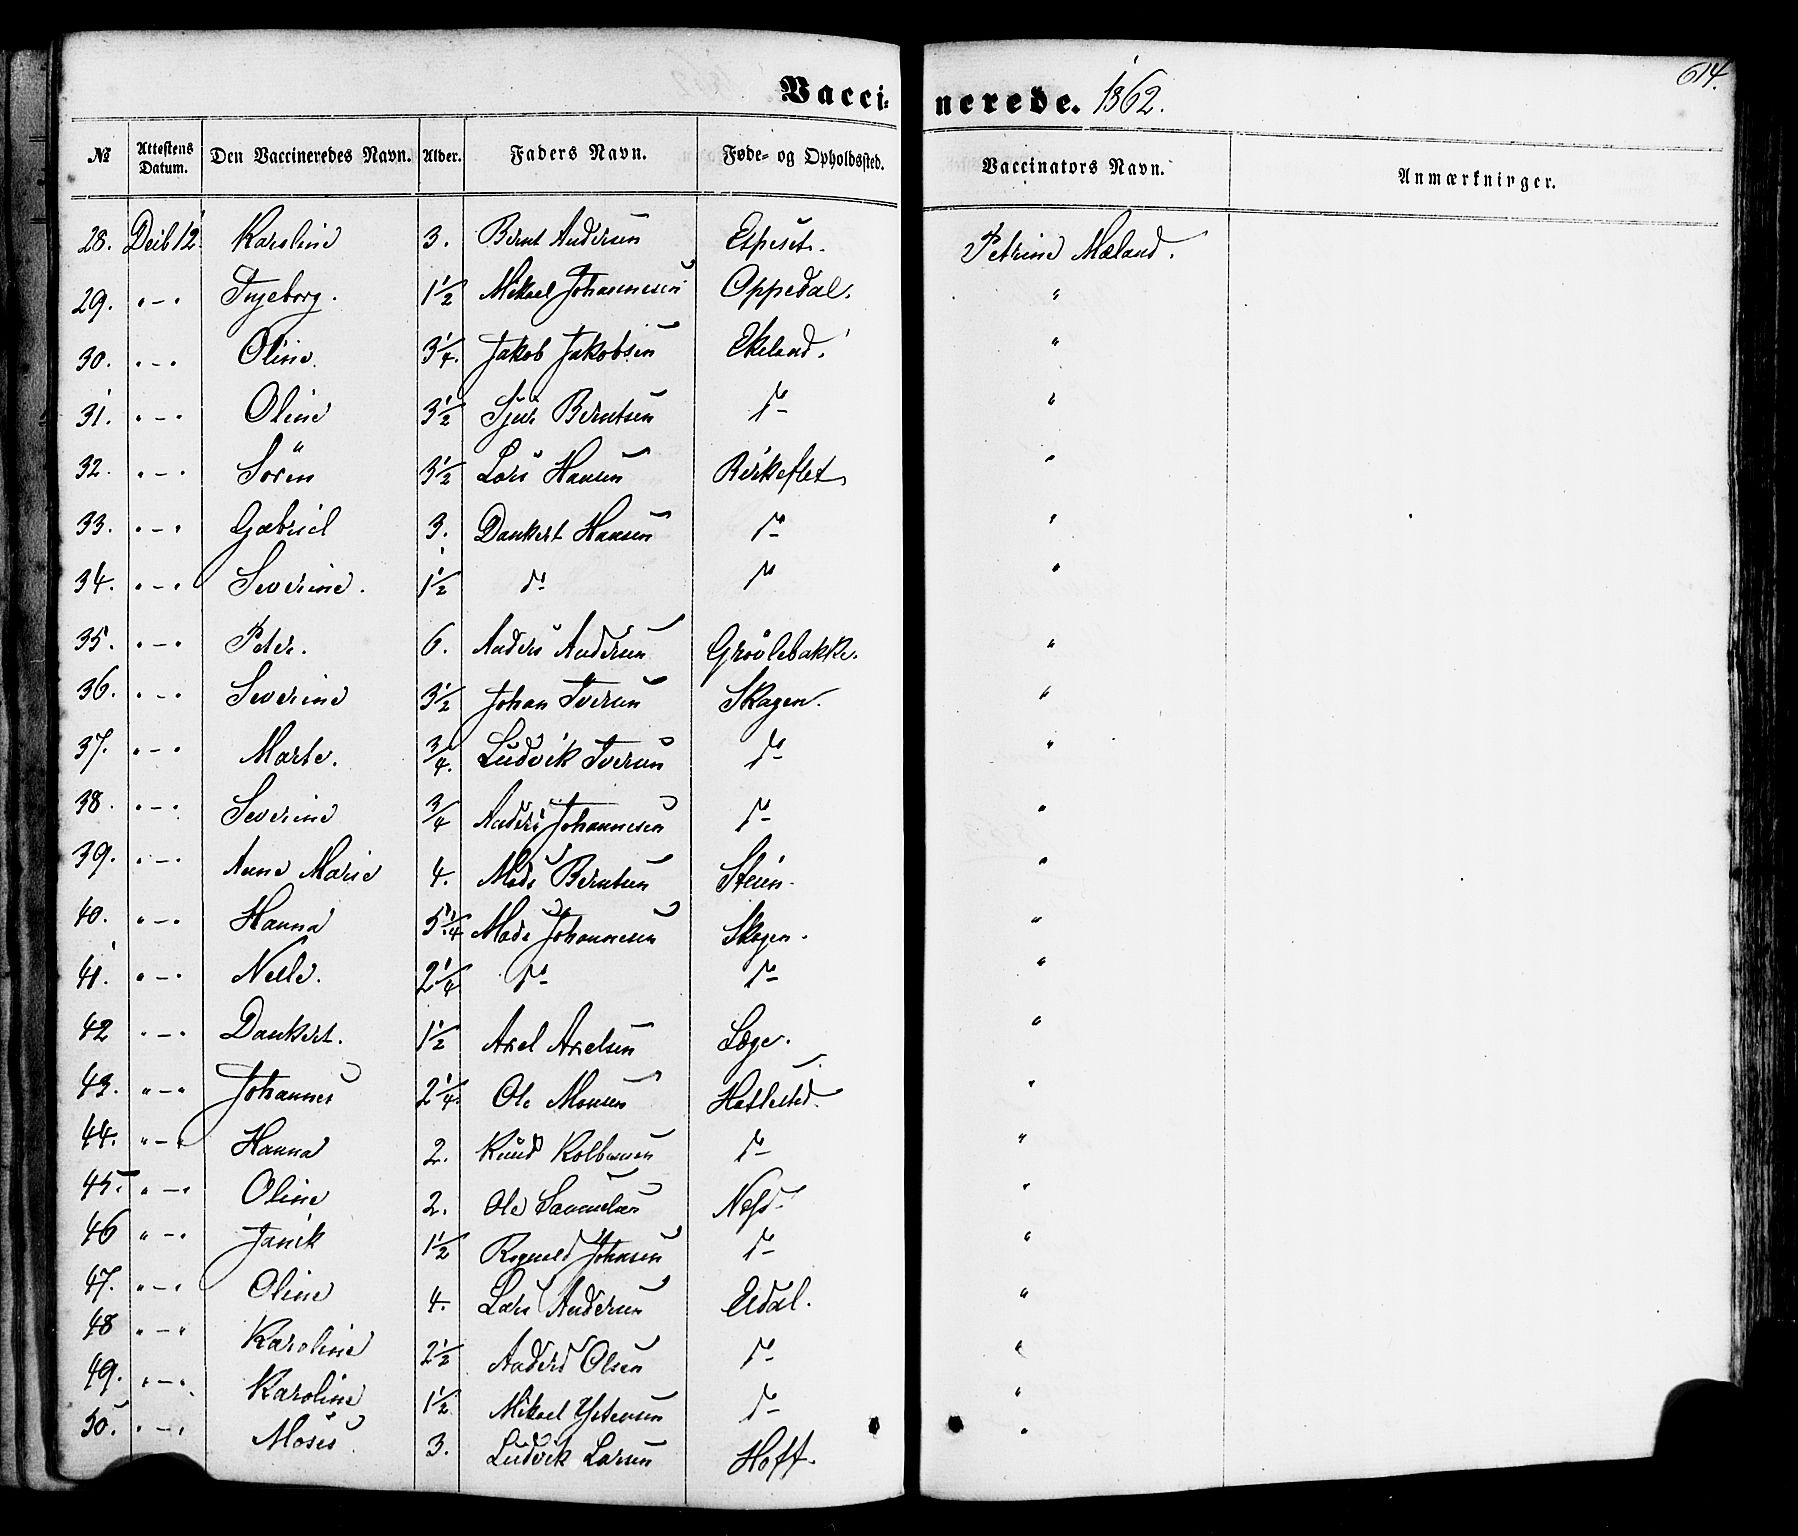 Vaccinerede. 1862.
614.
№ Attestens Datum. Den Vaccineredes Navn. Alder. Faders Navn. Føde- og Opholdssted. Vaccinators Navn. Anmærkninger.
28. Karoline 3. Bernt Andersen Espeset. Petrine Mæland.
29. " - " Ingeborg. 1 1/2 Mikael Johannesen Oppedal. "
30. " - " Oline. 3 1/4. Jakob Jakobsen Ekeland. "
31. " - " Oline 3 1/2 Sjur Berntsen do "
32. " - " Sören 3 1/2 Lars Hansen Birkeflet "
33. " - " Gabriel 3. Dankert Hansen do "
34. " - " Severine. 1 1/2 do do "
35. " - " Peter. 6. Anders Andersen Grövlebakke. "
36. " - " Severine 3 1/2 Johan Iversen Skagen. "
37. " - " Marte. 3/4. Ludvik Iversen do "
38. " - " Severine 3/4 Anders Johannesen do "
39. " - " Anne Marie 4. Mads Berntsen Steien. "
40. " - " Hanna 5 1/4 Mads Johannesen Skagen. "
41. " - " Neele. 2 1/4 do do "
42 " - " Dankert. 1 1/2 Axel Axelsen Læge. "
43. " - " Johannes 2 1/4. Ole Monsen Hatlested. "
44. " - " Hanna 2. Knud Kolbensen do "
45. " - " Oline 2. Ole Samuelsen "
46 " - " Janik 1 1/2 Rognald Johnsen do "
47. " - " Oline 4. Lars Andersen Eldal. "
48 " - " Karoline 2 1/2 Anders Olsen do "
49. " - " Karoline 1 1/2 Mikael do "
50. " - " Moses 3. Ludvik Larsen Hoff. "